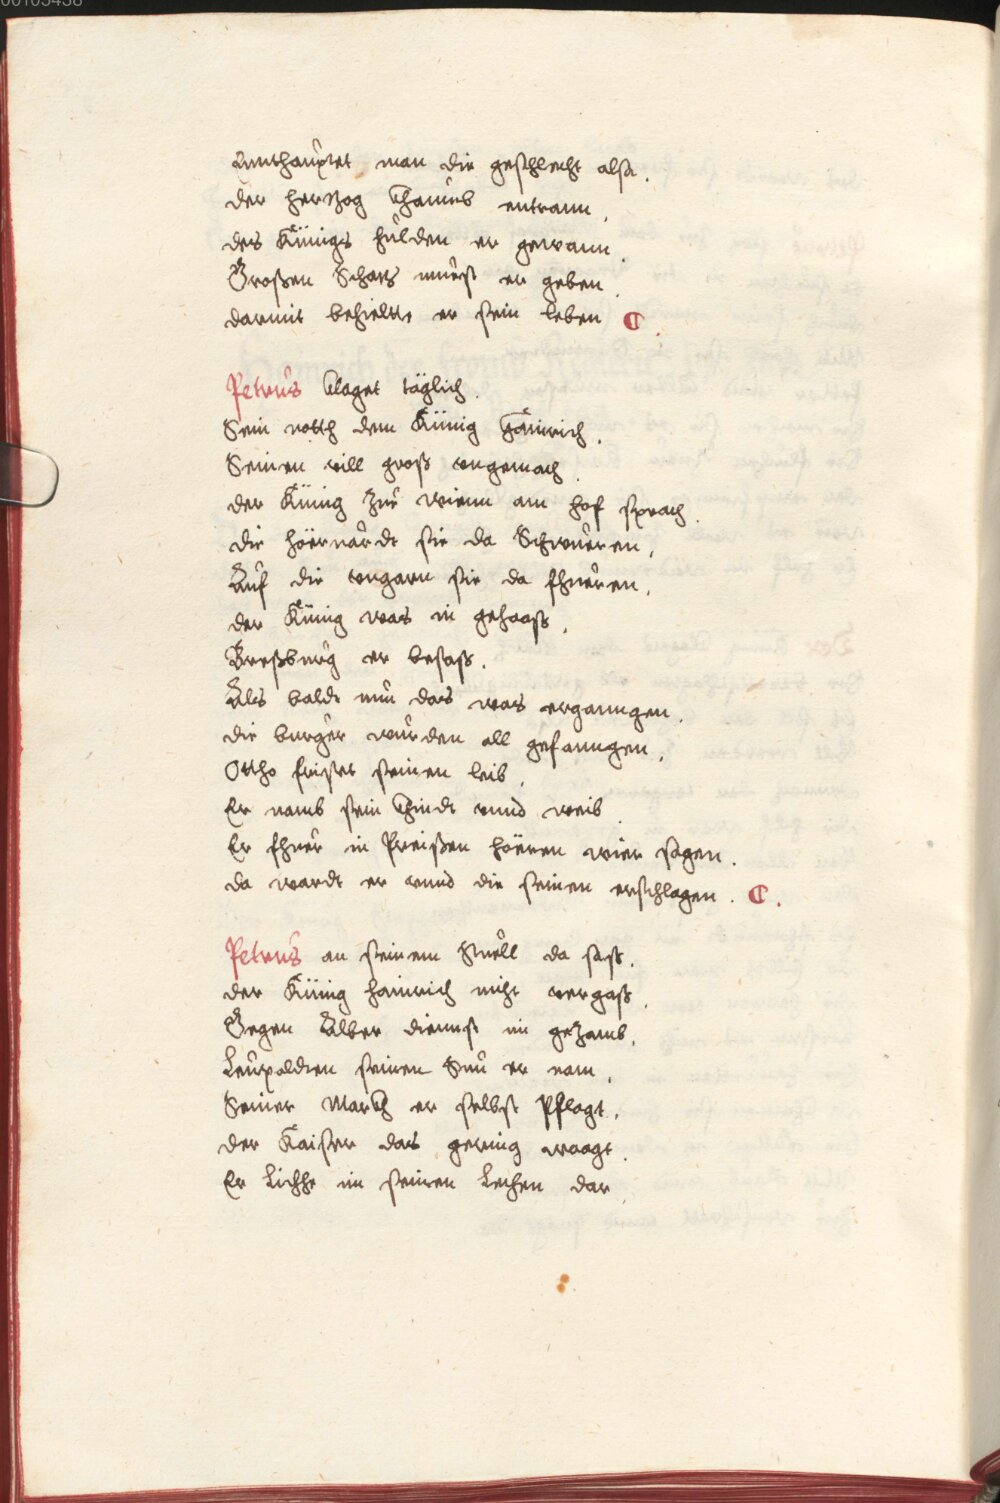 00103438
Ennthauptet man die geschlecht alsa.
der hertzog Chanus entrann,
des Künigs hulden er gewann.
Großen Schatz muest er geben.
darmit behieltt er sein leben
Petrus klaget täglich.
Sein notth dem Künig Hainrich.
Seinen vill groß vngemach.
der Künig Zue Wienn am hof sprach.
die höernärdt sie da Schwueren,
Auf die vngarn sie da fhueren.
der Künig was in gehaaß,
Breßburg er besaß.
Als baldt nun das was erganngen.
die burger wurden all gefanngen,
Ottho fristet seinen leib.
Er namb sein Chindt vnnd weib.
Er fhuer in Preißen höeren wier sagen.
da wardt er vnnd die seinen erschlagen.
Petrus an seinem Stuell da saß.
der Künig hainrich nicht vergaß.
Gegen Alber diennst im geZamb,
Leupoldten seinen Sun er nam,
Seiner March er selbst Pflagt,
der Kaiser das gering waagt.
Er Lichhe im seinen Lechen dar